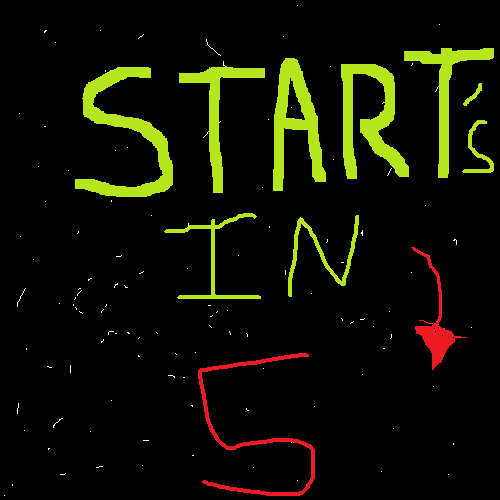 START's
IN
5